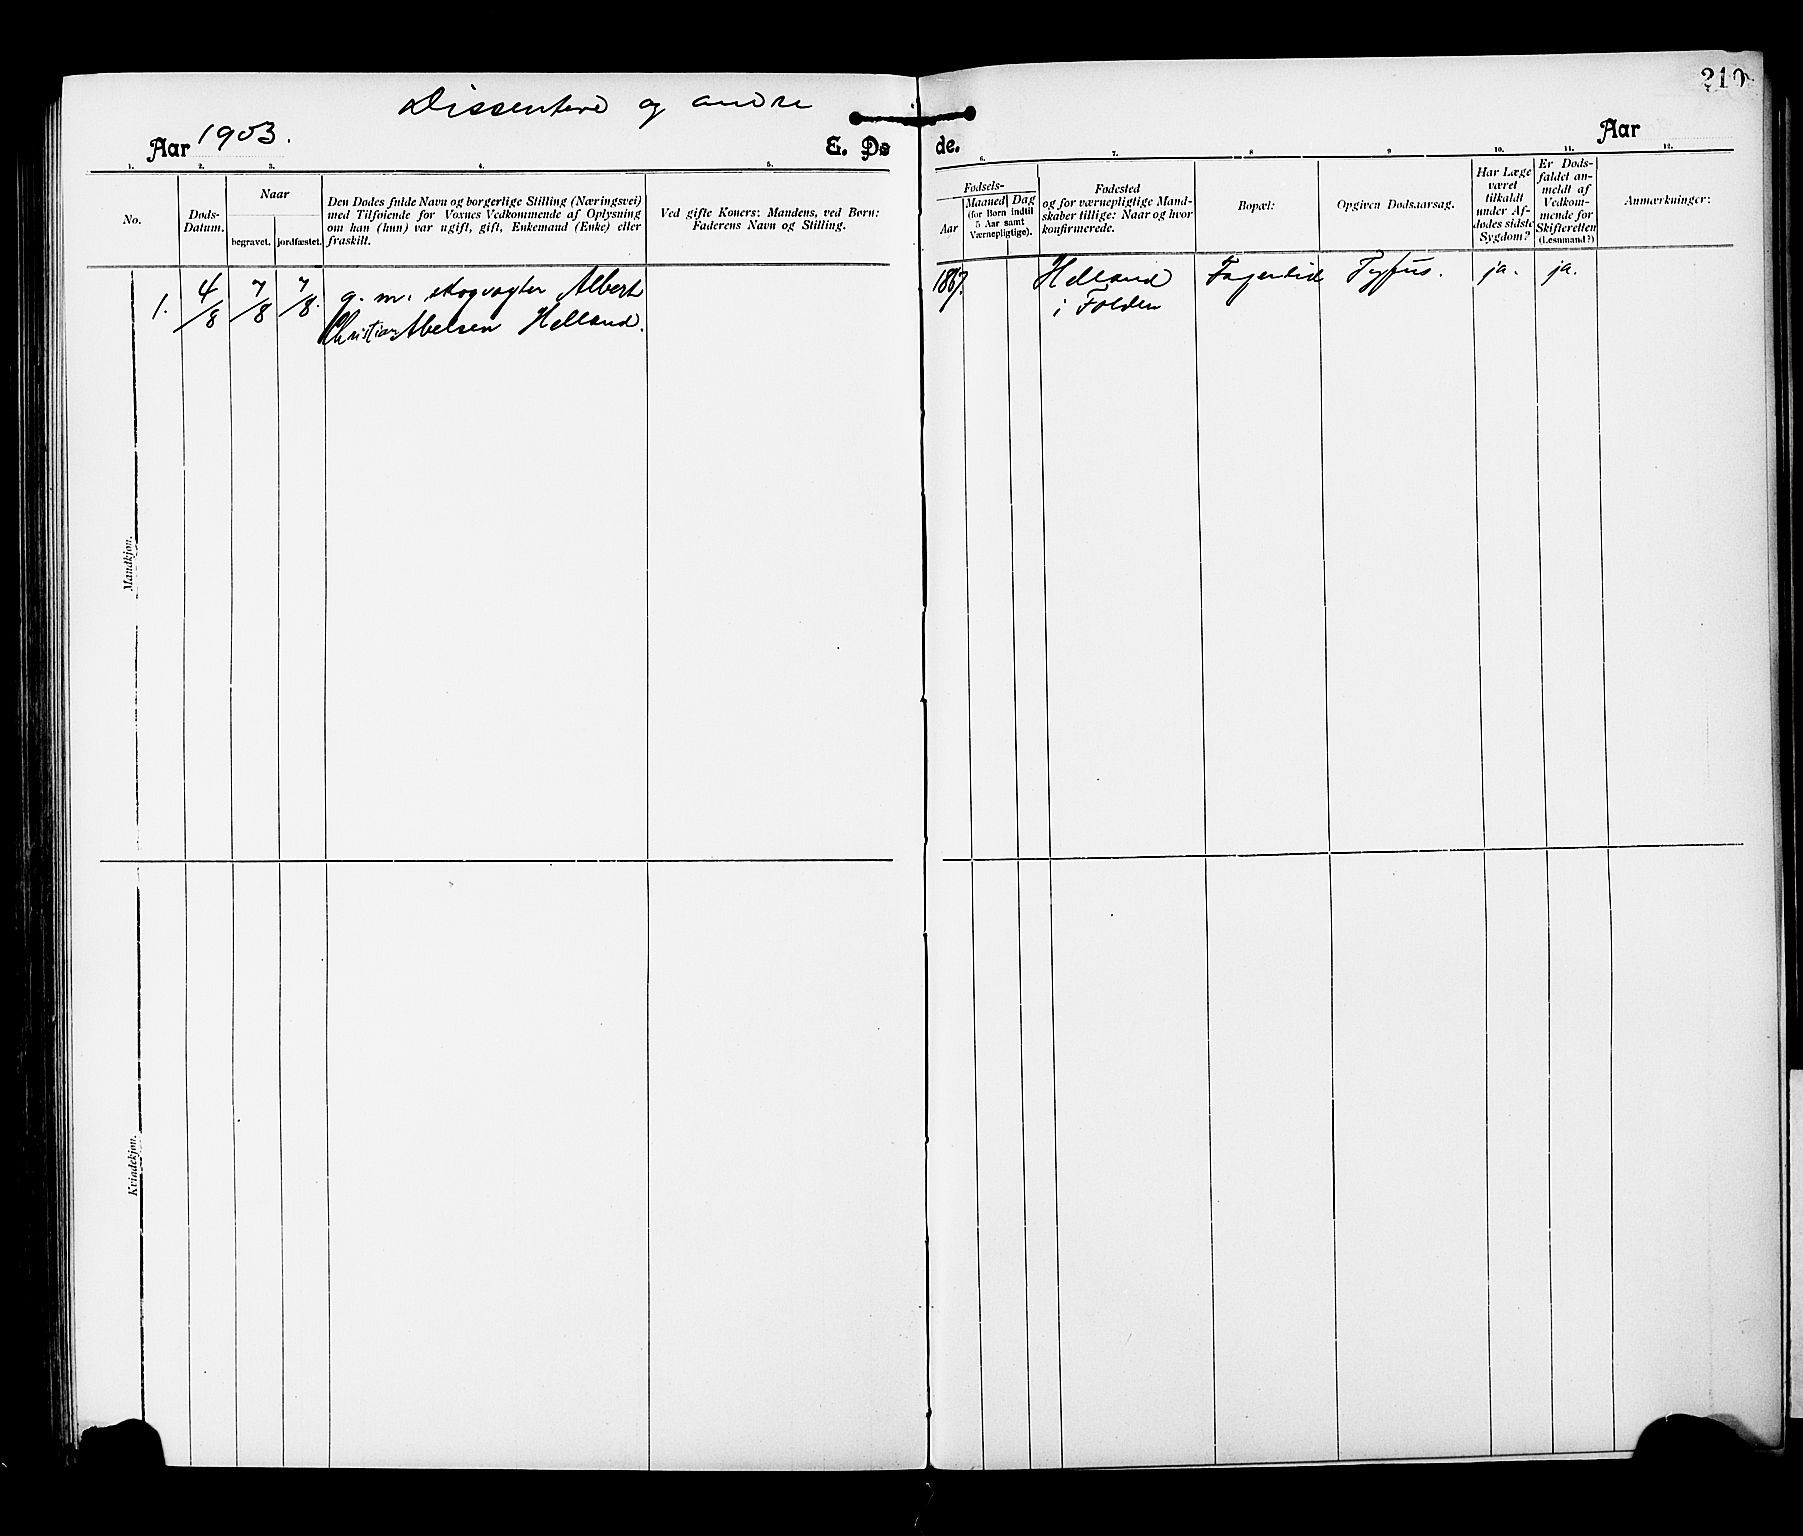 210
Dissentere og andre
Aar 1903.
E. Dø de.
Aar
1. 2. 3. 4. 5. 6. 7. 8 9 10. 11. 12.
No.
Døds-
Datum.
Naar
begravet. jordfæstet.
Den Dødes fulde Navn og borgerlige Stilling (Næringsvei)
med Tilføiende for Voxnes Vedkommende af Oplysning
om han (hun) var ugift, gift, Enkemand (Enke) eller
fraskilt.
Ved gifte Koner: Mandens, ved Børn:
Faderens Navn og Stilling.
Fødsels-
Aar
Maaned Dag
(for Børn indtil
5 Aar samt
Værnepligtige).
Fødested
og for værnepligtige Mand-
skaber tillige: Naar og hvor
konfirmerede.
Bopæl:
Opgiven Dødsaarsag.
Har Læge
været
tilkaldt
under Af-
dødes sidste
Sygdom?
Er Døds-
faldet an-
meldt af
Vedkom-
mende for
Skifteretten
(Lensmand?)
Anmærkninger:
Mandkjøn.
1. 4/8 7/8 7/8. g. m. skogvogter Albert
Christian Abelsen Helland.
1867. Helland
i Folden
Fagerlid Tyfus. ja. ja.
Kvindekjøn.